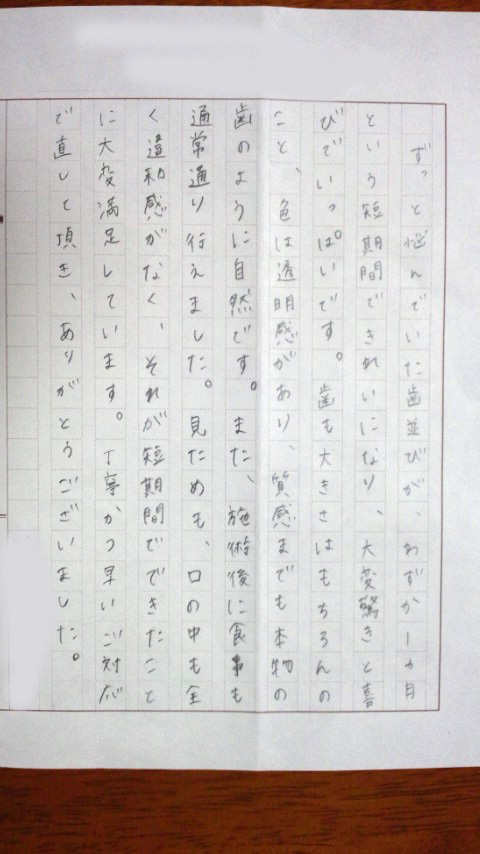 ずっと悩んでいた歯並びが、わずか一ヵ月
という短期間できれいになり、大変驚きと喜
びでいっぱいです。歯も大きさはもちろんの
こと、色は透明感があり、質感までも本物の
歯のように自然です。また、施術後に食事も
通常通り行えました。見ためも、口の中も全
く違和感がなく、それが短期間でできたこと
に大変満足しています。丁寧かつ早いご対応
で直して頂き、ありがとうございました。